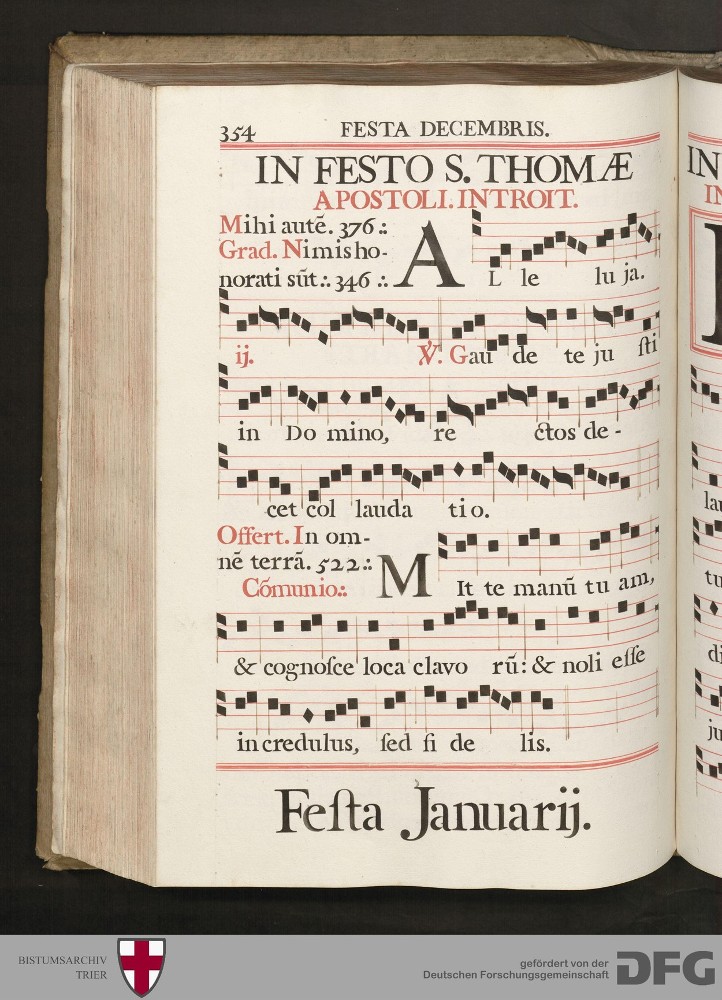 354 FESTA DECEMBRIS.
IN FESTO S. THOMÆ
APOSTOLI. INTROIT.
Mihi autē. 376.:
Grad. Nimis ho-
norati sūt.: 346.:
AL le lu ja.
ij. ℣. Gau de te ju ſti
in Do mino, re ctos de-
cet col lauda tio.
Offert. In om-
nē terrā. 522.:
Cōmunio.:
MIt te manū tu am,
& cognoſce loca clavo rū: & noli eſſe
incredulus, ſed fi de lis.
Feſta Januarij.
IN
IN
lau
tu
di
ju
BISTUMSARCHIV
TRIER
gefördert von der
Deutschen Forschungsgemeinschaft
DFG